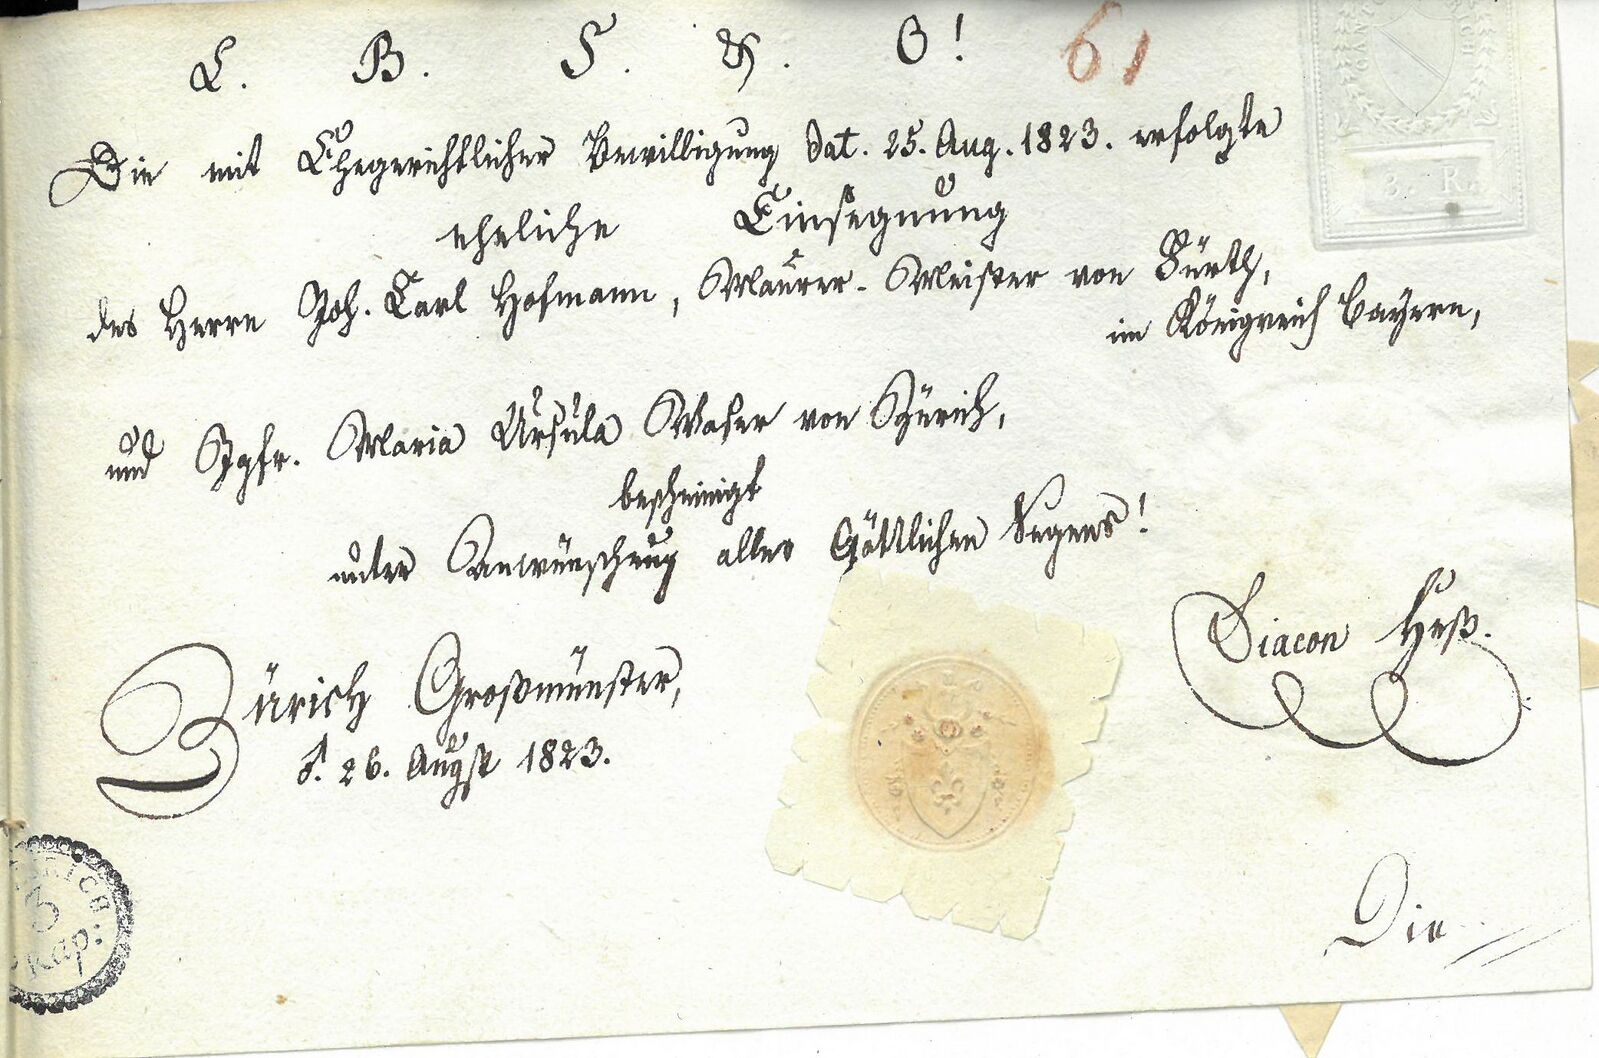 L. B. S. & O! 61
Die mit Ehegerichtlicher Bewilligung dat. 25. Aug. 1823. erfolgte
eheliche Einsegnung
des Herrn Joh. Carl Hofmann, Maurer-Meister von Fürth,
im Königreich Bayern,
und Jgfr. Maria Ursula Waser von Zürich,
bescheinigt
unter Anwünschung alles Göttlichen Segens!
Diacon Heß.
Zürich Großmünster,
d. 26. Augst 1823.
Die
3. R.
3